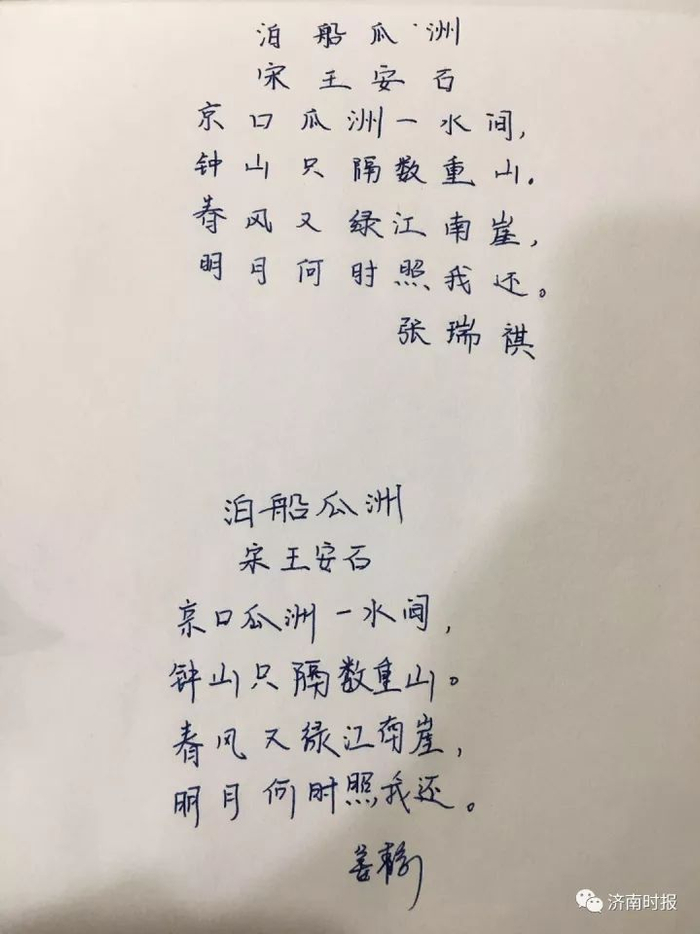 泊船瓜洲
宋王安石
京口瓜洲一水间，
钟山只隔数重山.
春风又绿江南崖，
明月何时照我还。
张瑞祺
泊船瓜洲
宋王安石
京口瓜洲一水间，
钟山只隔数重山。
春风又绿江南崖，
明月何时照我还。
姜
济南时报